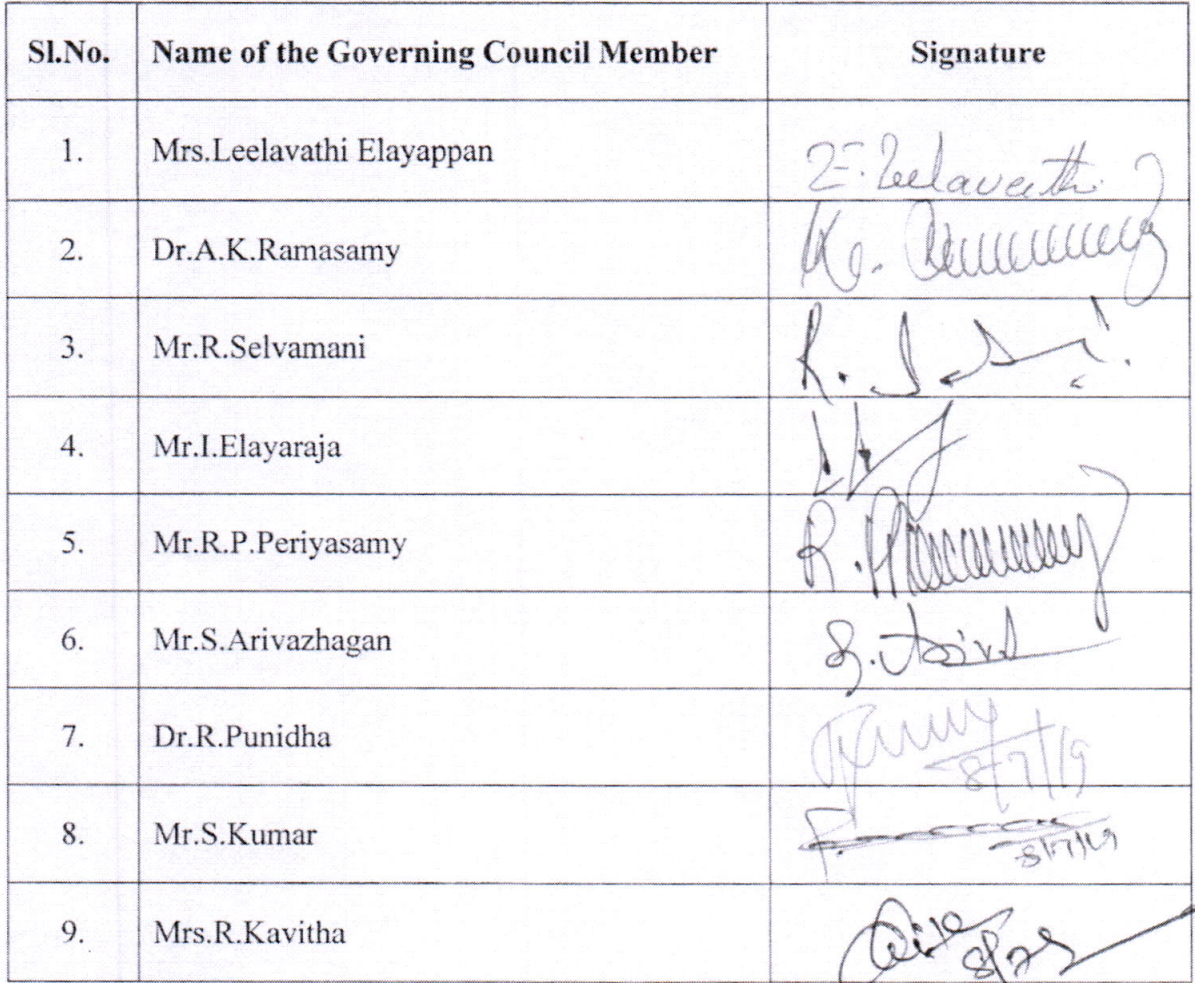 Sl.No. Name of the Governing Council Member Signature
1. Mrs.Leelavathi Elayappan E. Leelavathi
2. Dr.A.K.Ramasamy
3. Mr.R.Selvamani R.
4. Mr.I.Elayaraja
5. Mr.R.P.Periyasamy R.
6. Mr.S.Arivazhagan S.
7. Dr.R.Punidha 8/7/19
8. Mr.S.Kumar 8/7/19
9. Mrs.R.Kavitha